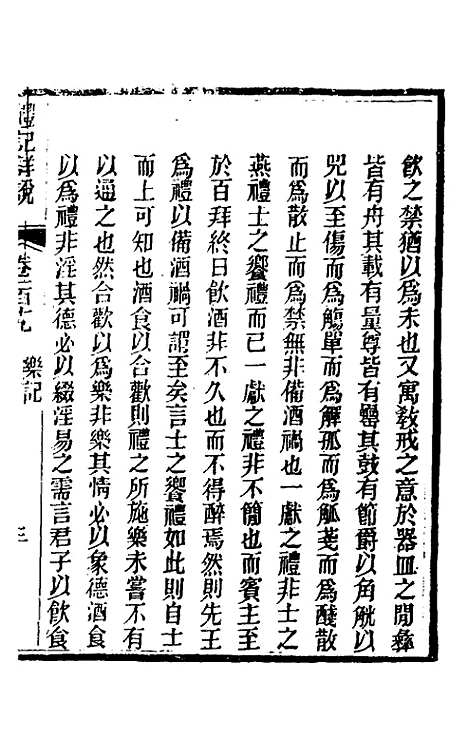 飲之禁猶以為未也又寓敎戒之意於器皿之閒彝
皆有舟其載有量尊皆有罍其鼓有節爵以角觥以
兕以至傷而為觴單而為觶孤而為觚戔而為醆散
而為散止而為禁無非備酒禍也一獻之禮非士之
燕禮士之饗禮而已一獻之禮非不簡也而賓主至
於百拜終日飲酒非不久也而不得醉焉然則先王
為禮以備酒禍可謂至矣言士之饗禮如此則自士
而上可知也酒食以合歡則禮之所施樂未嘗不有
以通之也然合歡以為樂非樂其情必以象德酒食
以為禮非淫其德必以綴淫易之需言君子以飲食
禮記詳說 卷一百九 樂記 三